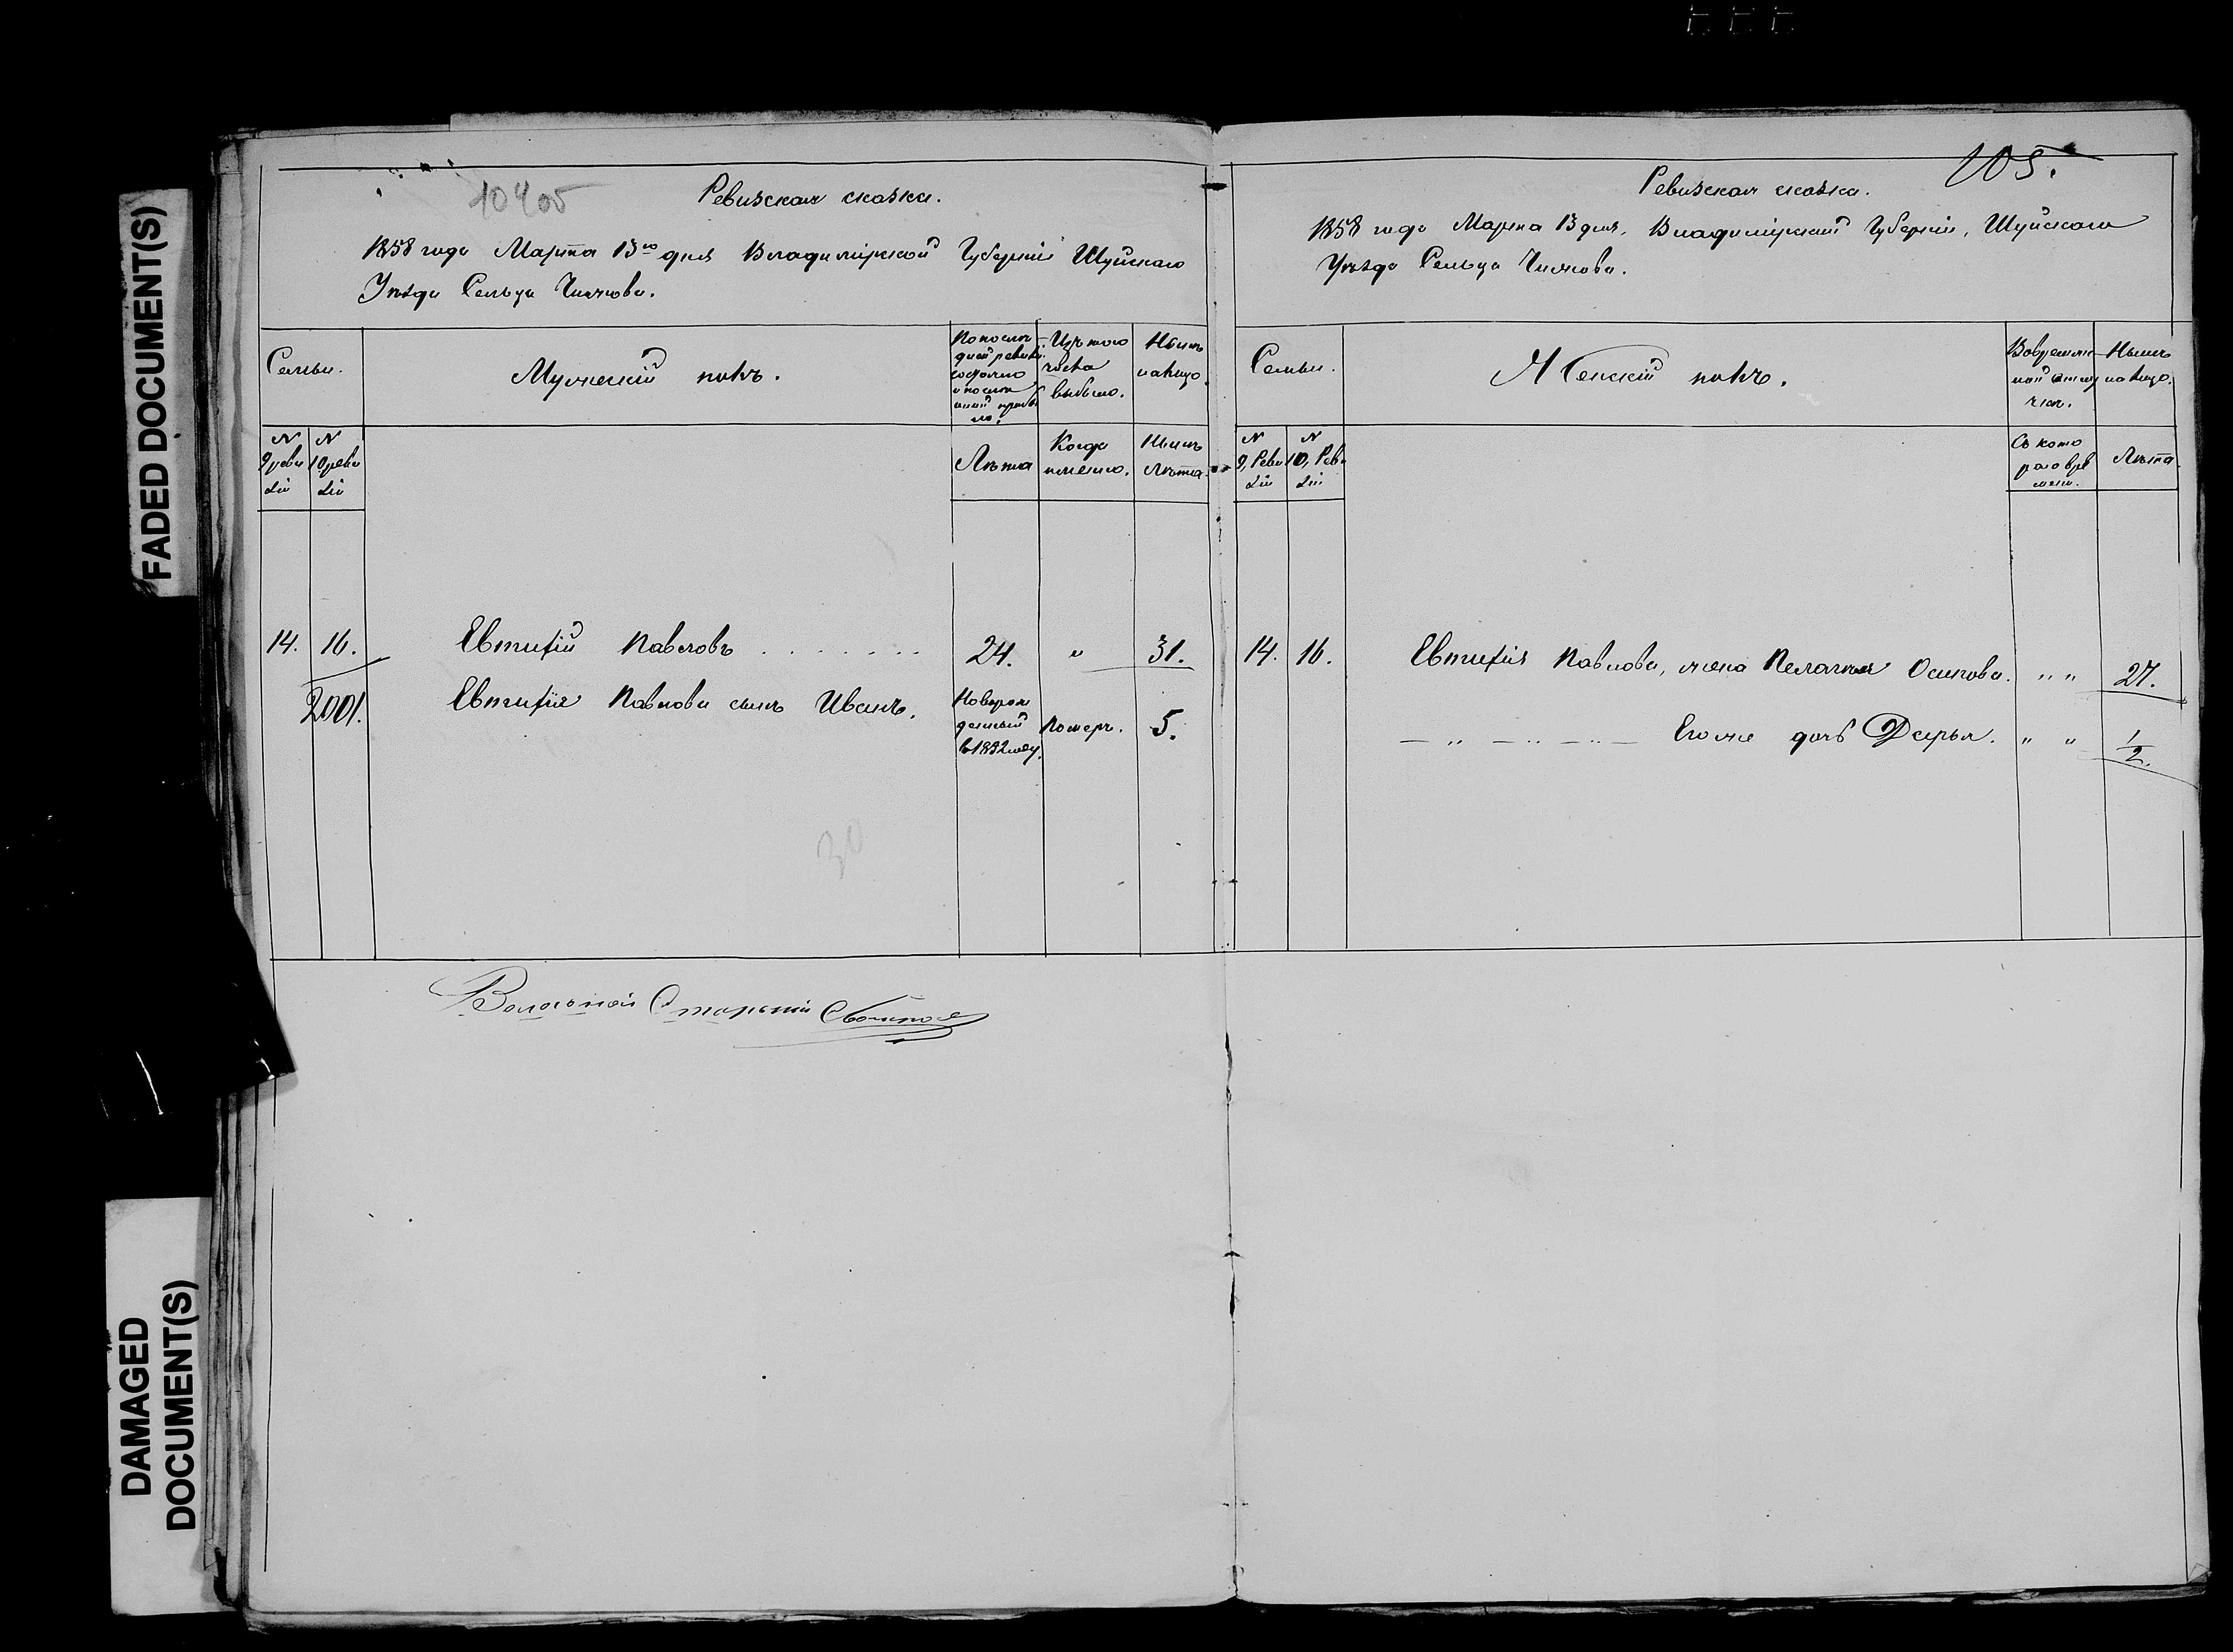 FADED DOCUMENT(S)
DAMAGED
DOCUMENT(S)
10405
Ревизская сказка.
1858 года Марта 13го дня Владимірской Губерніи Шуйскаго
Уѣзда Сельца Чижова.
Семьи.
Мужескій полъ.
По послѣ
дней ревизіи
состояло
и послѣ
оной прибы
ло.
Изъ того
числа
выбыло.
Нынѣ
налицо.
N
9 реви
зіи
N
10 реви
зіи
Лѣта
Когда
именно.
Нынѣ
Лѣта.
14. 16. Евтифій Павловъ 24. " 31.
2001. Евтифія Павлова сынъ Иванъ. Новорож
денный
в 1852 году. Померъ. 5.
30
Волосной Старшій
105.
Ревизская сказка.
1858 года Марта 13 дня, Владимірской Губерніи, Шуйскаго
Уѣзда Сельца Чижова.
Семьи.
Женскій полъ.
Во времен
ной отлу
чкѣ.
Нынѣ
налицо.
N
9, Реви
зіи
N
10, Реви
зіи
Съ кото
раго вре
мени.
Лѣта.
14. 16. Евтифія Павлова, жена Пелагия Осипова. " " 27.
— " — " — " — Его же дочь Дарья. " " 1/2.